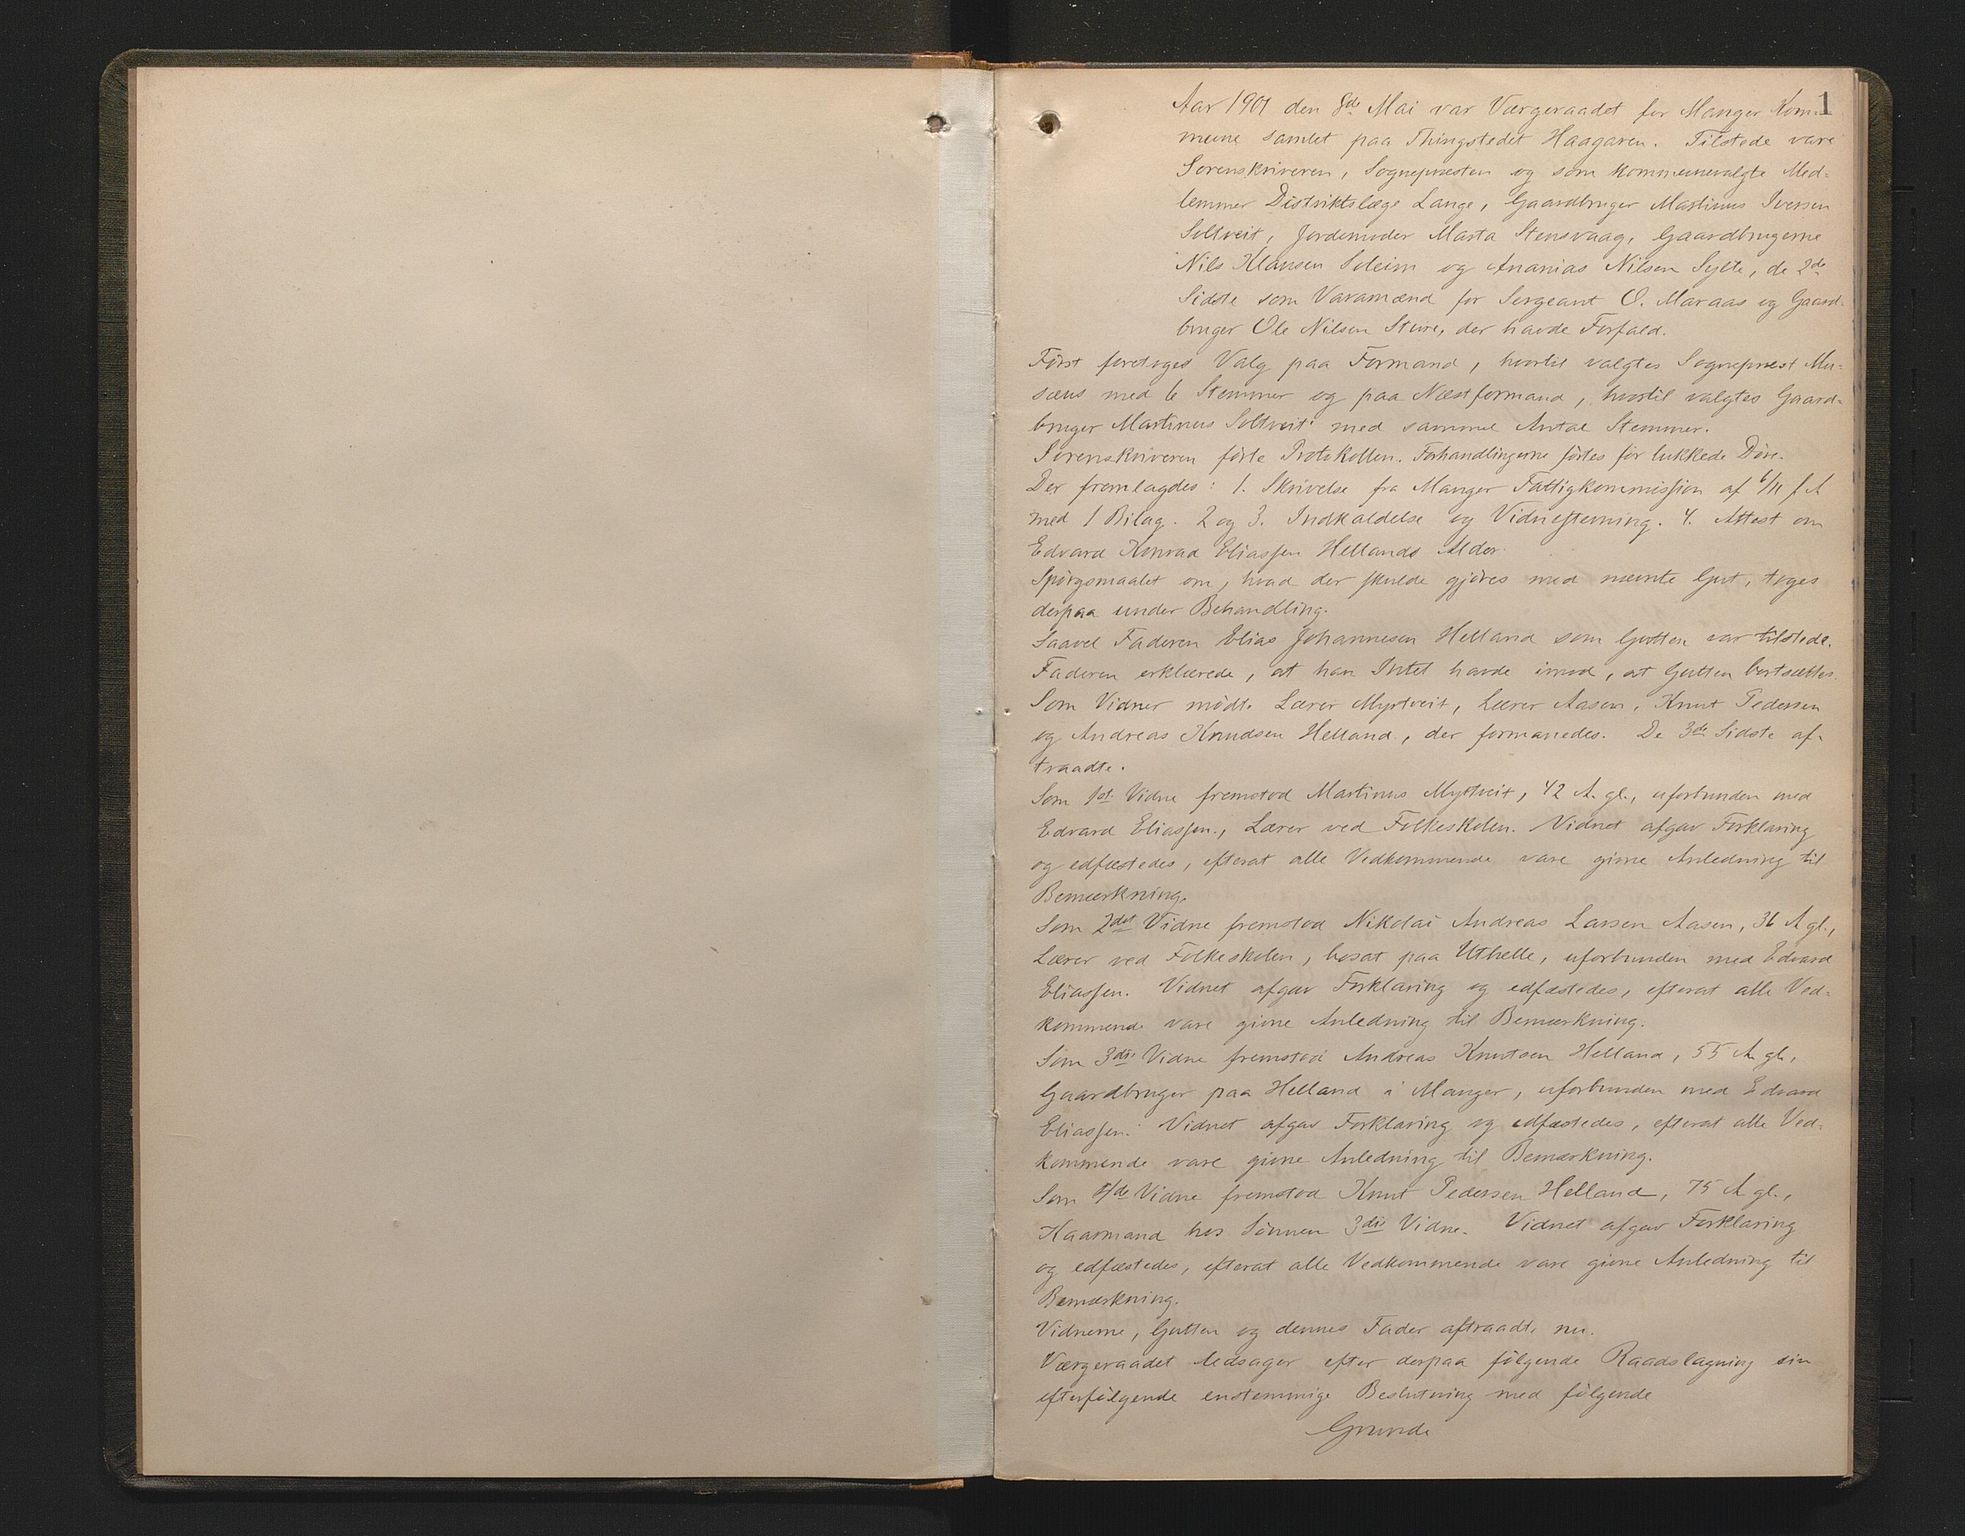 1
Aar 1901 den 8de Mai var Værgeraadet for Manger Kom-
mune samlet paa Thingstedet Haagaren. Tilstede vare
Sorenskriveren, Sognepresten og som kommunevalgte Med-
lemmer Distriktslæge Lange, Gaardbruger Martinus Iversen
Soltveit, Jordemoder Marta Stensvaag, Gaardbrugerne
Nils Klausen Soleim og Ananias Nilsen Sylte, de 2de
Sidste som Varamænd for Sergeant O. Maraas og Gaard-
bruger Ole Nilsen Sture, der havde Forfald.
Først foretoges Valg paa Formand, hvortil valgtes Sogneprest Mu-
sæus med 6 Stemmer og paa Næstformand, hvortil valgtes Gaard-
bruger Martinus Soltveit med samme Antal Stemmer.
Sorenskriveren førte Protokollen. Forhandlingerne førtes for lukkede Døre.
Der fremlagdes: 1. Skrivelse fra Manger Fattigkommission af 6/11 f A
med 1 Bilag. 2 og 3. Indkaldelse og Vidnestevning. 4. Attest om
Edvard Konrad Eliassen Hellands Alder.
Spørgsmaalet om, hvad der skulde gjøres med nævnte Gut, toges
derpaa under Behandling.
Saavel Faderen Elias Johannesen Helland som Gutten var tilstede.
Faderen erklærede, at han Intet havde imod, at Gutten bortsættes.
Som Vidner mødte Lærer Myrtveit, Lærer Aasen, Knut Pedersen
og Andreas Knudsen Helland, der formanedes. De 3de Sidste af-
traadte.
Som 1st Vidne fremstod Martinus Myrtveit, 42 A. gl., uforbunden med
Edvard Eliassen, Lærer ved Folkeskolen. Vidnet afgav Forklaring
og edfæstedes, efterat alle Vedkommende vare givne Anledning til
Bemærkning.
Som 2det Vidne fremstod Nikolai Andreas Larsen Aasen, 36 A gl.,
Lærer ved Folkeskolen, bosat paa Uthelle, uforbunden med Edvard
Eliassen. Vidnet afgav Forklaring og edfæstedes, efterat alle Ved-
kommende vare givne Anledning til Bemærkning.
Som 3die Vidne fremstod Andreas Knutsen Helland, 55 A gl.,
Gaardbruger paa Helland i Manger, uforbunden med Edvard
Eliassen. Vidnet afgav Forklaring og edfæstedes, efterat alle Ved-
kommende vare givne Anledning til Bemærkning.
Som 4de Vidne fremstod Knut Pedersen Helland, 75 A gl.,
Kaarmand hos Sønnen 3die Vidne. Vidnet afgav Forklaring
og edfæstedes, efterat alle Vedkommende vare givne Anledning til
Bemærkning.
Vidnerne, Gutten og dennes Fader aftraadte nu.
Værgeraadet efter derpaa følgende Raadslagning sin
efterfølgende enstemmige Beslutning med følgende
Grunde